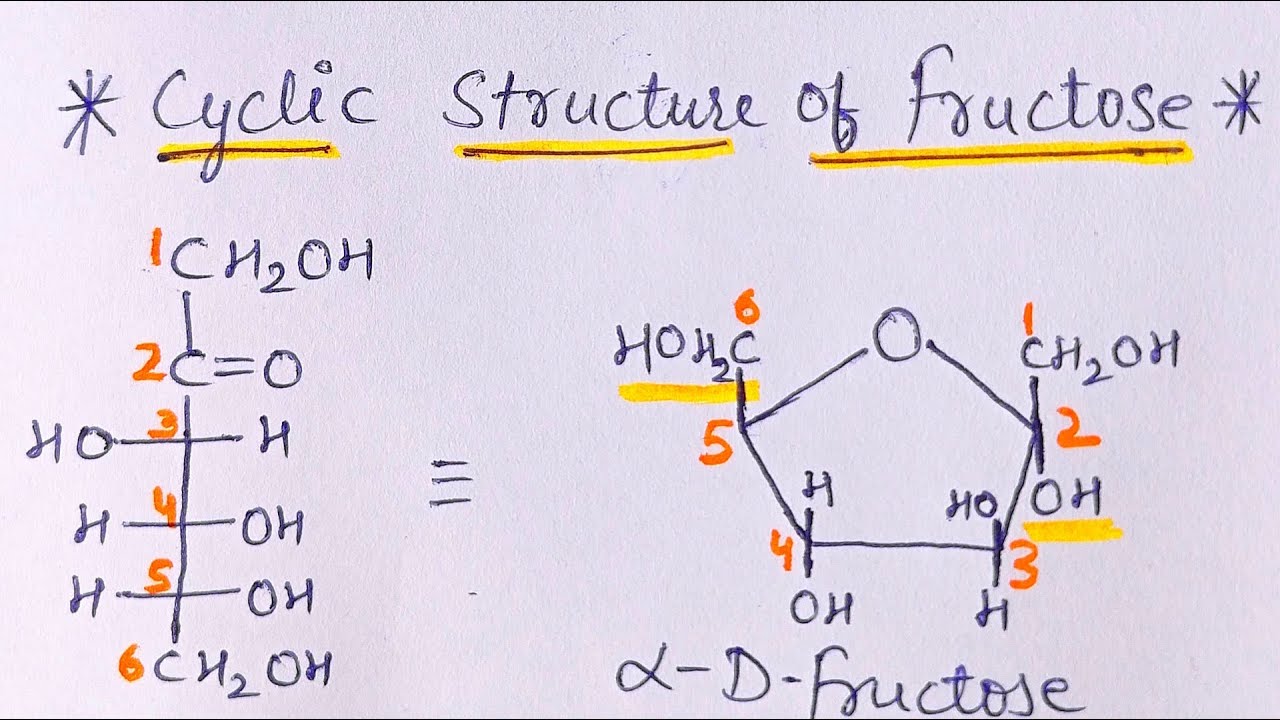 * Cyclic Structure of fructose *
1 CH2OH
2 C=O
HO 3 H
H 4 OH
H 5 OH
6 CH2OH
≡
6 1
HOH2C O CH2OH
5 2
H HO OH
4 3
OH H
α-D-fructose